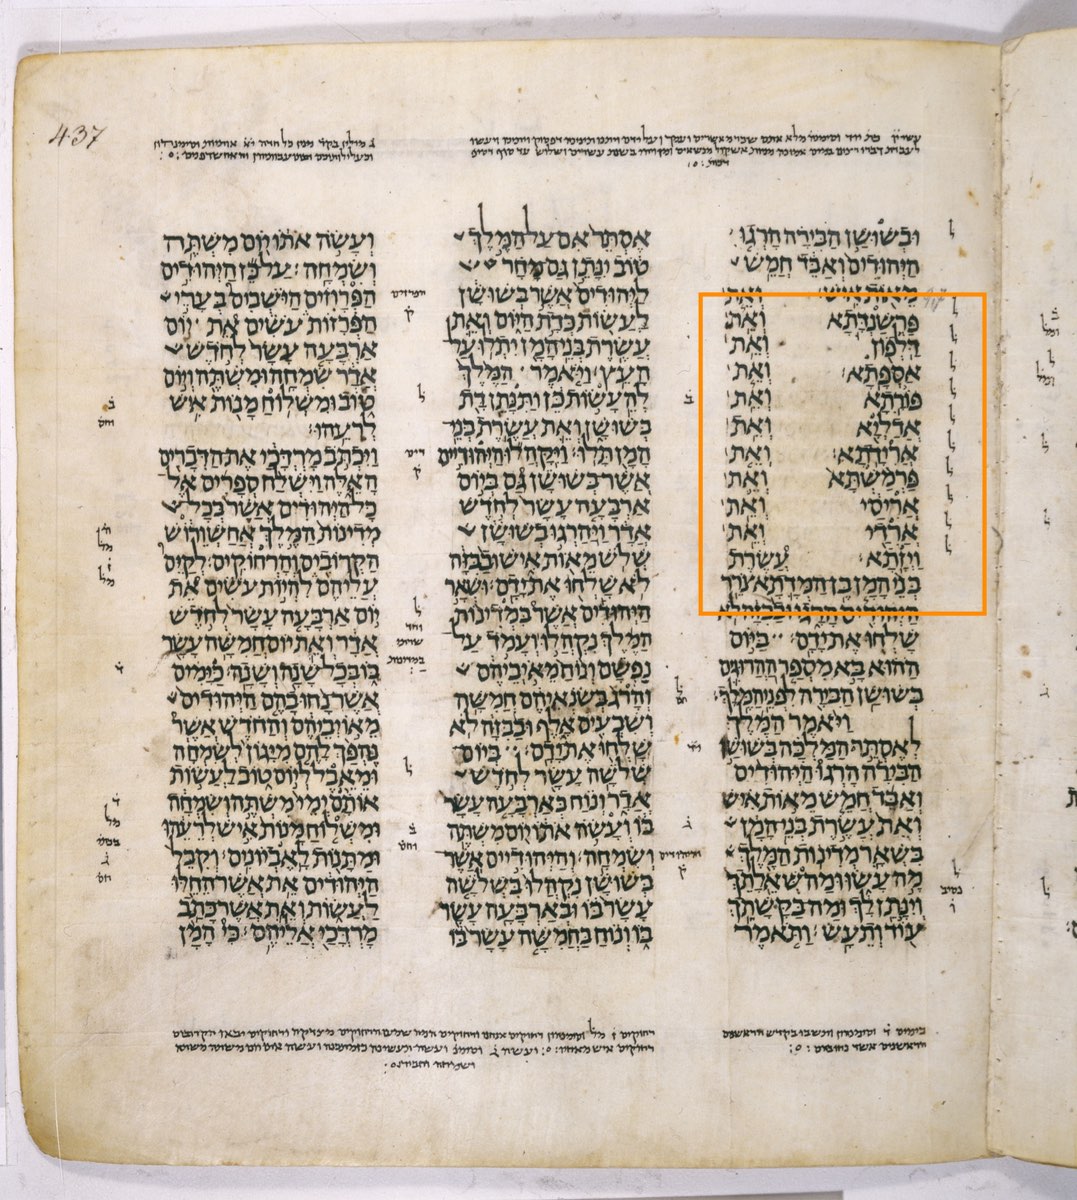 437
ובשושן הבירה הרגו
היהודים ואבד חמש
מאות איש ואת
פרשנדתא ואת
דלפון ואת
אספתא ואת
פורתא ואת
אדליא ואת
ארידתא ואת
פרמשתא ואת
אריסי ואת
ארדי ואת
ויזתא עשרת
בני המן בן המדתא צרר
היהודים הרגו ובבזה לא
שלחו את ידם׃ ביום
ההוא בא מספר ההרוגים
בשושן הבירה לפני המלך׃
ויאמר המלך
לאסתר המלכה בשושן
הבירה הרגו היהודים
ואבד חמש מאות איש
ואת עשרת בני המן
בשאר מדינות המלך
מה עשו ומה שאלתך
וינתן לך ומה בקשתך
עוד ותעש׃ ותאמר
אסתר אם על המלך
טוב ינתן גם מחר
ליהודים אשר בשושן
לעשות כדת היום ואת
עשרת בני המן יתלו על
העץ׃ ויאמר המלך
להעשות כן ותנתן דת
בשושן ואת עשרת בני
המן תלו׃ ויקהלו היהודיים
אשר בשושן גם ביום
ארבעה עשר לחדש
אדר ויהרגו בשושן
שלש מאות איש ובבזה
לא שלחו את ידם׃ ושאר
היהודים אשר במדינות
המלך נקהלו ועמד על
נפשם ונוח מאיביהם
והרג בשנאיהם חמשה
ושבעים אלף ובבזה לא
שלחו את ידם׃ ביום
שלשה עשר לחדש
אדר ונוח בארבעה עשר
בו ועשה אתו יום משתה
ושמחה׃ והיהודיים אשר
בשושן נקהלו בשלשה
עשר בו ובארבעה עשר
בו ונוח בחמשה עשר בו
ועשה אתו יום משתה
ושמחה׃ על כן היהודים
הפרוזים הישבים בערי
הפרזות עשים את יום
ארבעה עשר לחדש
אדר שמחה ומשתה ויום
טוב ומשלוח מנות איש
לרעהו׃
ויכתב מרדכי את הדברים
האלה וישלח ספרים אל
כל היהודים אשר בכל
מדינות המלך אחשורוש
הקרובים והרחוקים׃ לקים
עליהם להיות עשים את
יום ארבעה עשר לחדש
אדר ואת יום חמשה עשר
בו בכל שנה ושנה׃ כימים
אשר נחו בהם היהודים
מאויביהם והחדש אשר
נהפך להם מיגון לשמחה
ומאבל ליום טוב לעשות
אותם ימי משתה ושמחה
ומשלוח מנות איש לרעהו
ומתנות לאביונים׃ וקבל
היהודים את אשר החלו
לעשות ואת אשר כתב
מרדכי אליהם׃ כי המן